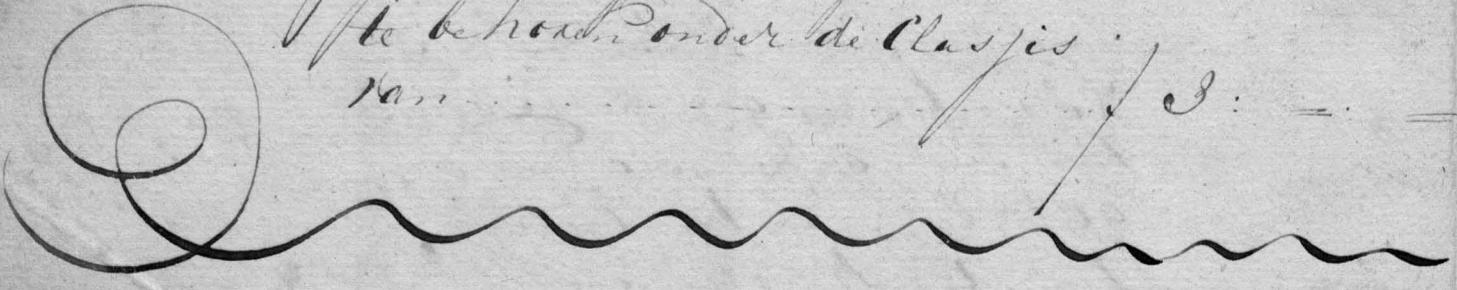 te behoren onder de Classis
van . . . . . . . . . . ƒ 3 : = . =